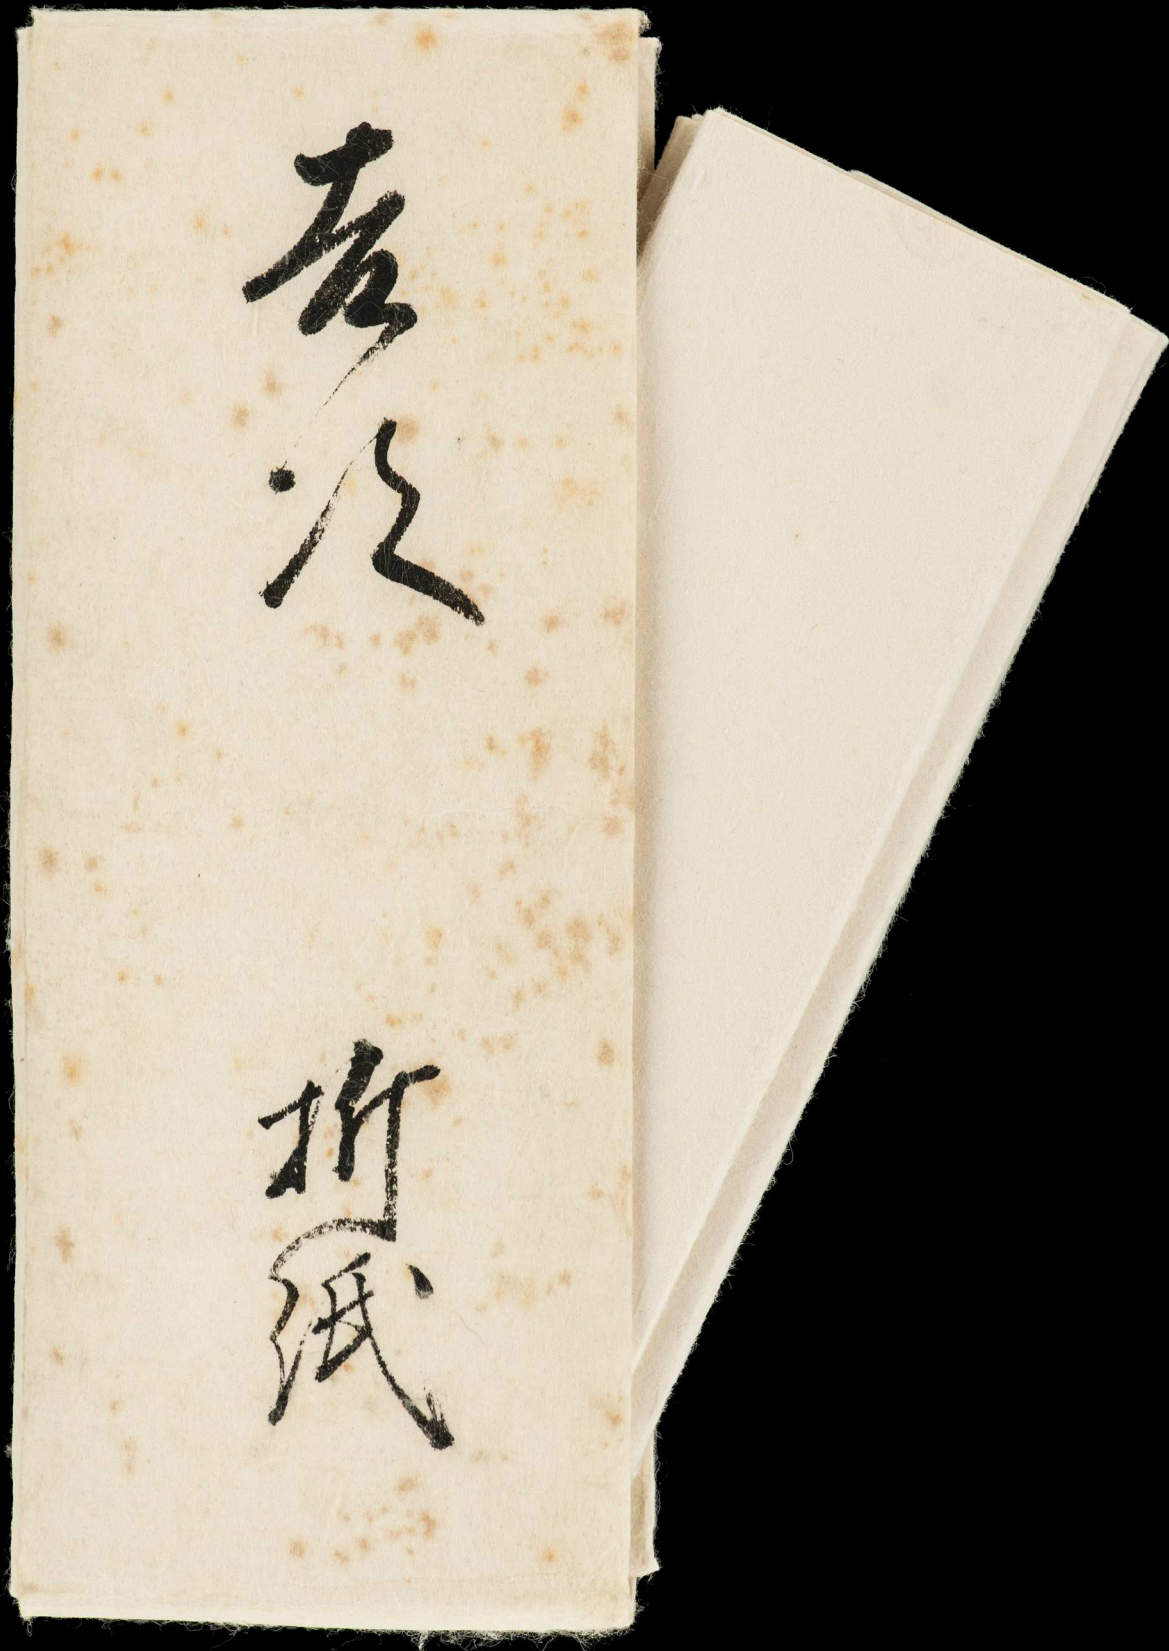 吉次 折紙